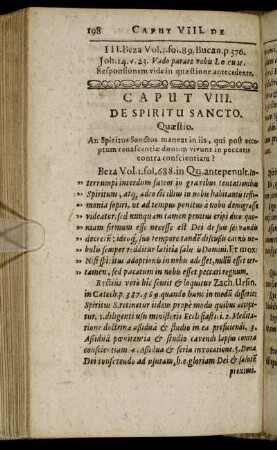 198 CAPUT VIII. DE
III. Beza Vol. 1. fol. 89. Bucan. p. 376.
Joh. 14. v. 23. Vado parare vobis Locum.
Responsionem vide in quæstione antecedente.
CAPUT VIII.
DE SPIRITU SANCTO.
Quæstio.
An Spiritus Sanctus maneat in iis, qui post ac-
ceptum renascentiæ donum vivunt in peccatis
contra conscientiam?
Beza Vol. 1. fol. 688. in Qu. antepenult. In-
terrumpi interdum fateor in gravibus tentationibus
Spiritum, atq; adeo ut illius in nobis habitantis testi-
monia sopiri, ut ad tempus penitus à nobis demigrasse
videatur, sed nunquam tamen penitus eripi dico: quo-
niam firmum esse necesse est Dei de suis servandis
decretum; ideoq; suo tempore tandē discussa carnis ne-
bulis semper redditur lætitia salutis Domini. Et mox:
Nisi spiritus adoptionis in nobis adesset, nullū esset ur-
tamen, sed pacatum in nobis esset peccati regnum.
Rectius verò hîc sensit & loquitur Zach. Ursin.
in Catech. p. 387. 389. quando hunc in modū disserit:
Spiritus S. retinetur iisdem propè modis quibus accipi-
tur. 1. diligenti usu ministerii Ecclesiastici. 2. Medita-
tione doctrinæ assiduâ & studio in ea proficiendi. 3.
Assiduâ pœnitentiâ & studio cavendi lapsus contra
conscientiam. 4. Assiduâ & seria invocatione. 5. Donis
Dei conscendo, ad usuram, h. e. gloriam Dei & salutē
proximi.